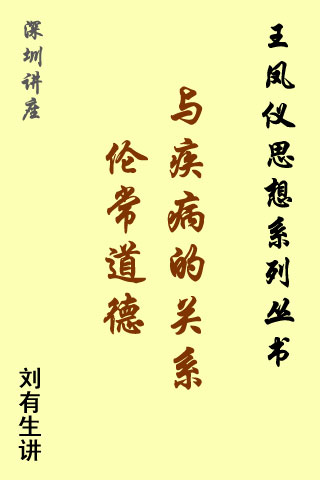 王凤仪思想系列丛书
伦常道德
与疾病的关系
深圳讲座
刘有生讲